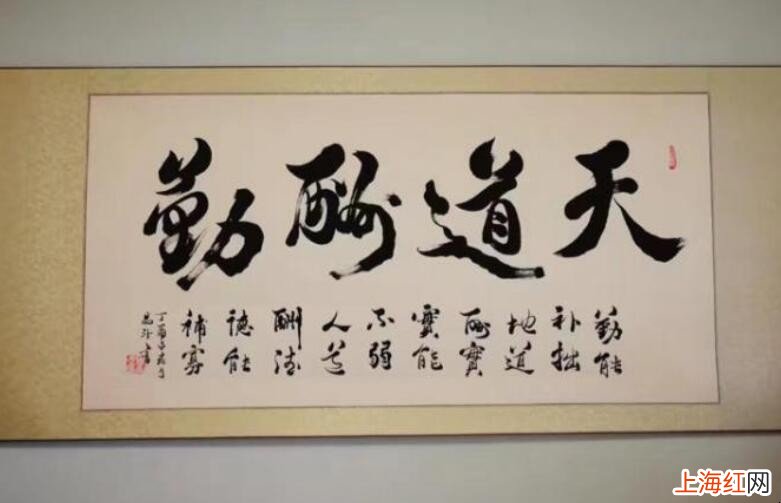 天道酬勤
勤能
补拙
地道
酬實
實能
不弱
人道
酬德
德能
補寡
丁酉
上海红网